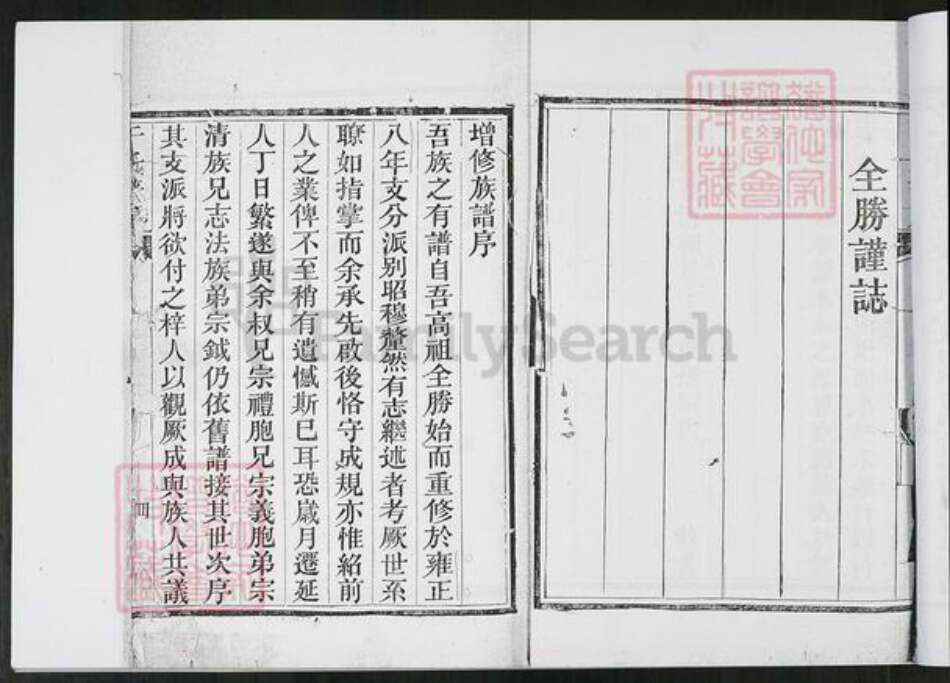 全勝謹誌
增修族譜序
吾族之有譜自吾高祖全勝始而重修於雍正
八年支分派別昭穆釐然有志繼述者考厥世系
瞭如指掌而余承先啟後恪守成規亦惟紹前
人之業俾不至稍有遺憾斯已耳恐歲月遷延
人丁日繁遂與余叔兄宗禮胞兄宗義胞弟宗
清族兄志法族弟宗鉞仍依舊譜接其世次序
其支派將欲付之梓人以觀厥成與族人共議
四
FamilySearch